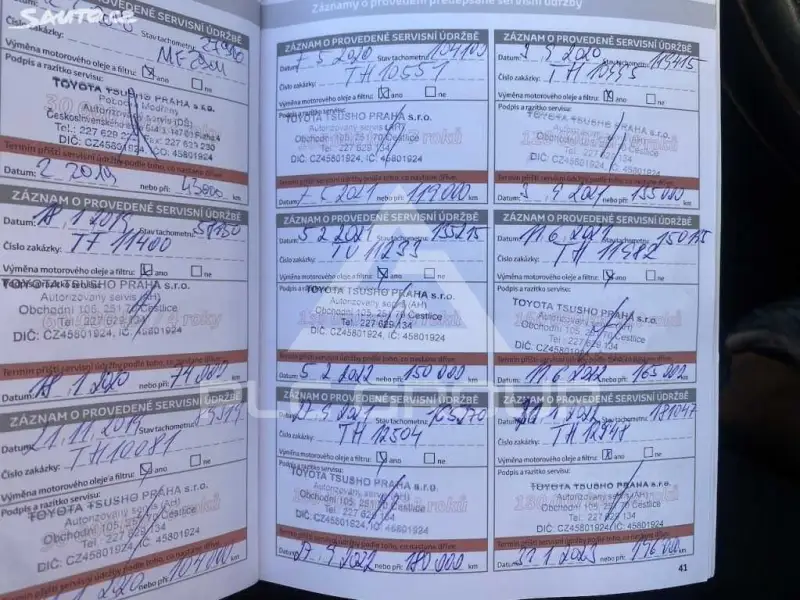 Sauto.cz
PROVEDENÉ SERVISNÍ ÚDRŽBĚ
Číslo zakázky:
Stav tachometru:
Výměna motorového oleje a filtru: ano ne
Podpis a razítko servisu:
TOYOTA TSUSHO PRAHA s.r.o.
Autorizovaný servis (DS)
Tel.: 227 629 230
DIČ: CZ45801924, IČO: 45801924
Termín příští servisní údržby podle toho, co nastane dříve.
Datum: 2. 2019 nebo při: 45000 km
ZÁZNAM O PROVEDENÉ SERVISNÍ ÚDRŽBĚ
Datum: 18. 1. 2019 Stav tachometru:
Číslo zakázky: TF 11400
Výměna motorového oleje a filtru: ano ne
Podpis a razítko servisu:
TOYOTA TSUSHO PRAHA s.r.o.
Autorizovaný servis (AH)
Obchodní 105, 251 70 Čestlice
Tel.: 227 629 134
DIČ: CZ45801924, IČ: 45801924
Termín příští servisní údržby podle toho, co nastane dříve.
18. 1. 2020 nebo při: 74 000 km
ZÁZNAM O PROVEDENÉ SERVISNÍ ÚDRŽBĚ
21. 11. 2019 Stav tachometru:
Číslo zakázky: TH10081
Výměna motorového oleje a filtru: ano ne
Podpis a razítko servisu:
TOYOTA TSUSHO PRAHA s.r.o.
Autorizovaný servis (AH)
Obchodní 105, 251 70 Čestlice
Tel.: 227 629 134
DIČ: CZ45801924, IČ: 45801924
Termín příští servisní údržby podle toho, co nastane dříve.
2020 nebo při: 104 000 km
Záznamy o provedení předepsané servisní údržby
ZÁZNAM O PROVEDENÉ SERVISNÍ ÚDRŽBĚ
Datum: 7. 5. 2020 Stav tachometru: 104109
Číslo zakázky: TH 10551
Výměna motorového oleje a filtru: ano ne
Podpis a razítko servisu:
TOYOTA TSUSHO PRAHA s.r.o.
Autorizovaný servis (AH)
Obchodní 105, 251 70 Čestlice
Tel.: 227 629 134
DIČ: CZ45801924, IČ: 45801924
Termín příští servisní údržby podle toho, co nastane dříve.
2021 nebo při: 119 000 km
ZÁZNAM O PROVEDENÉ SERVISNÍ ÚDRŽBĚ
Datum: 2020 Stav tachometru: 119415
Číslo zakázky: TH 10995
Výměna motorového oleje a filtru: ano ne
Podpis a razítko servisu:
TOYOTA TSUSHO PRAHA s.r.o.
Autorizovaný servis (AH)
Obchodní 105, 251 70 Čestlice
Tel.: 227 629 134
DIČ: CZ45801924, IČ: 45801924
Termín příští servisní údržby podle toho, co nastane dříve.
Datum: 3. 9. 2021 nebo při: 135 000 km
ZÁZNAM O PROVEDENÉ SERVISNÍ ÚDRŽBĚ
Datum: 5. 2. 2021 Stav tachometru: 135215
Číslo zakázky: 11233
Výměna motorového oleje a filtru: ano ne
Podpis a razítko servisu:
TOYOTA TSUSHO PRAHA s.r.o.
Autorizovaný servis (AH)
Obchodní 105, 251 70 Čestlice
Tel.: 227 629 134
DIČ: CZ45801924, IČ: 45801924
Termín příští servisní údržby podle toho, co nastane dříve.
Datum: 5. 2. 2022 nebo při: 150 000 km
ZÁZNAM O PROVEDENÉ SERVISNÍ ÚDRŽBĚ
Datum: 11. 6. 2021 Stav tachometru:
Číslo zakázky: TH 11982
Výměna motorového oleje a filtru: ano ne
Podpis a razítko servisu:
TOYOTA TSUSHO PRAHA s.r.o.
Autorizovaný servis (AH)
Obchodní 105, 251 70 Čestlice
Tel.: 227 629 134
DIČ: CZ45801924, IČ: 45801924
Termín příští servisní údržby podle toho, co nastane dříve.
Datum: 11. 6. 2022 nebo při: 165 000 km
DLC GROUP
ZÁZNAM O PROVEDENÉ SERVISNÍ ÚDRŽBĚ
Datum: 27. 9. 2021 Stav tachometru: 165270
Číslo zakázky: TH 12504
Výměna motorového oleje a filtru: ano ne
Podpis a razítko servisu:
TOYOTA TSUSHO PRAHA s.r.o.
Autorizovaný servis (AH)
Obchodní 105, 251 70 Čestlice
Tel.: 227 629 134
DIČ: CZ45801924, IČ: 45801924
Termín příští servisní údržby podle toho, co nastane dříve.
Datum: 27. 9. 2022 nebo při: 180 000 km
ZÁZNAM O PROVEDENÉ SERVISNÍ ÚDRŽBĚ
1. 2022 Stav tachometru: 181047
Číslo zakázky: TH 12948
Výměna motorového oleje a filtru: ano ne
Podpis a razítko servisu:
TOYOTA TSUSHO PRAHA s.r.o.
Autorizovaný servis (AH)
Obchodní 105, 251 70 Čestlice
Tel.: 227 629 134
DIČ: CZ45801924, IČ: 45801924
Termín příští servisní údržby podle toho, co nastane dříve.
Datum: 1. 2023 nebo při: 196 000 km
41